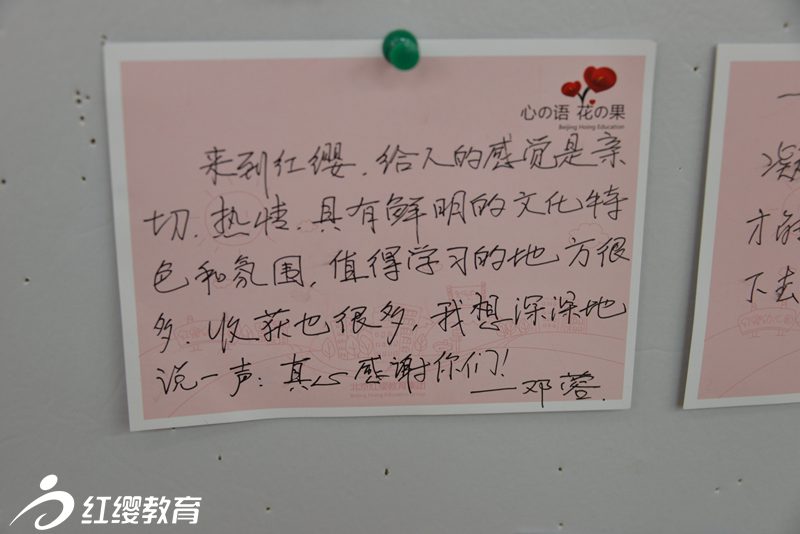 心の语 花の果
Beijing Hoing Education
来到红缨，给人的感觉是亲
切、热情，具有鲜明的文化特
色和氛围，值得学习的地方很
多，收获也很多，我想深深地
说一声：真心感谢你们！
——邓蓉
凝
才能
下去
红缨教育